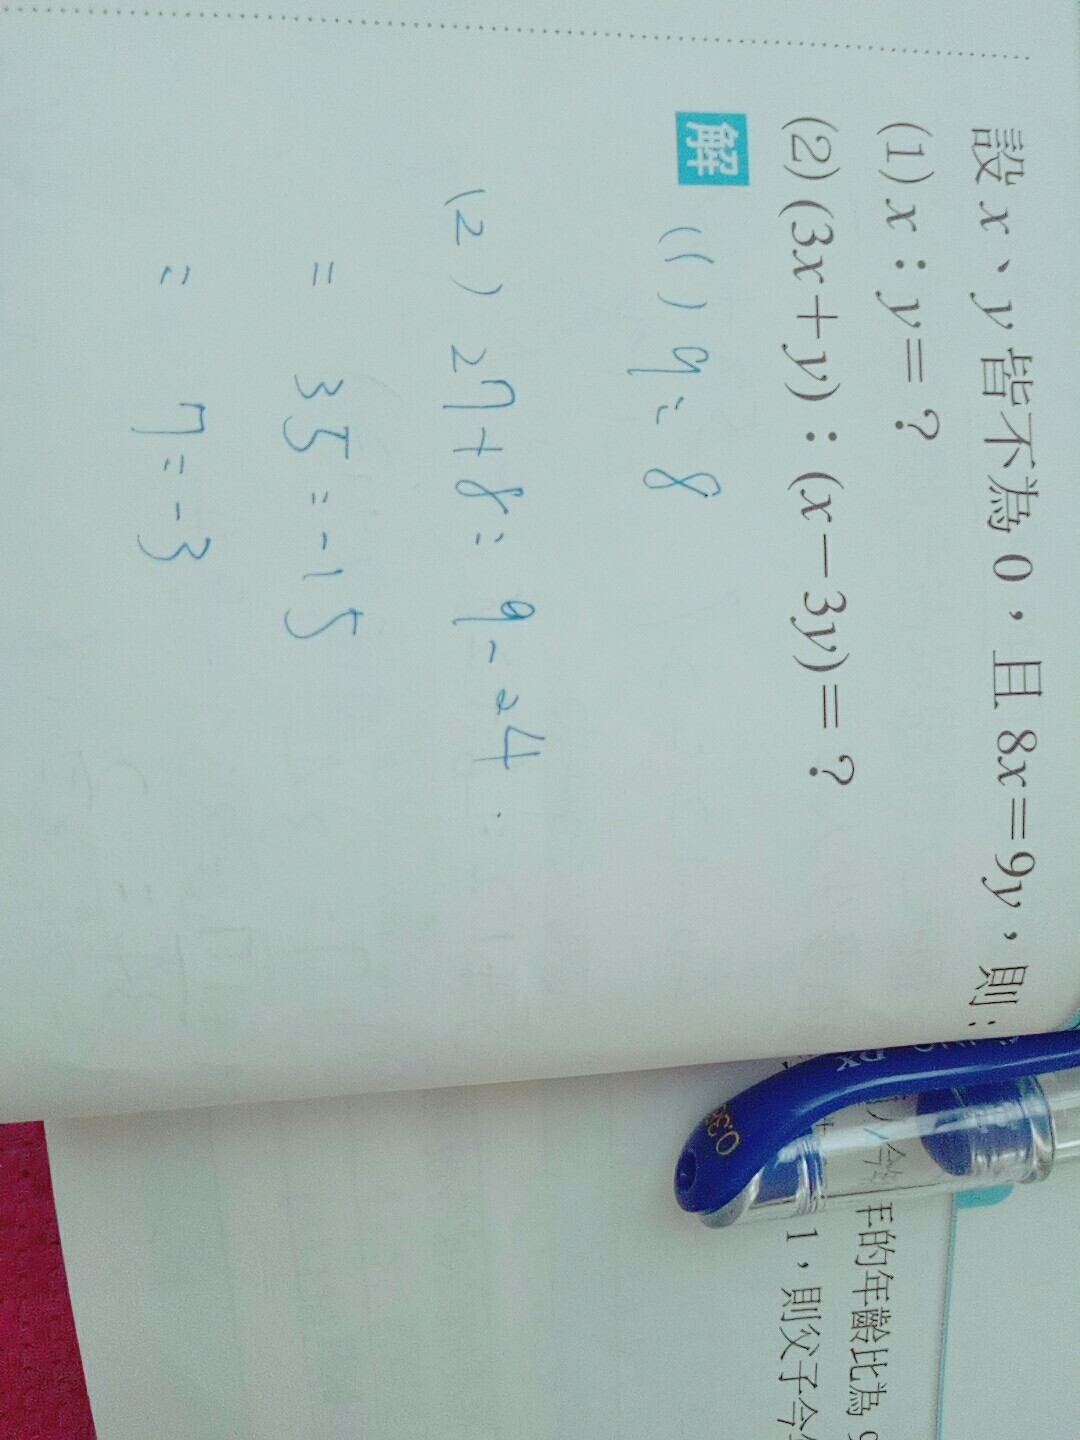 設 x、y 皆不為 0，且 8x=9y，則：
(1) x：y=？
(2) (3x+y)：(x-3y)=？
解
(1) 9:8
(2) 27+8:9-24
= 35:-15
= 7:-3
DX
0.38
年的年齡比為
1，則父子今